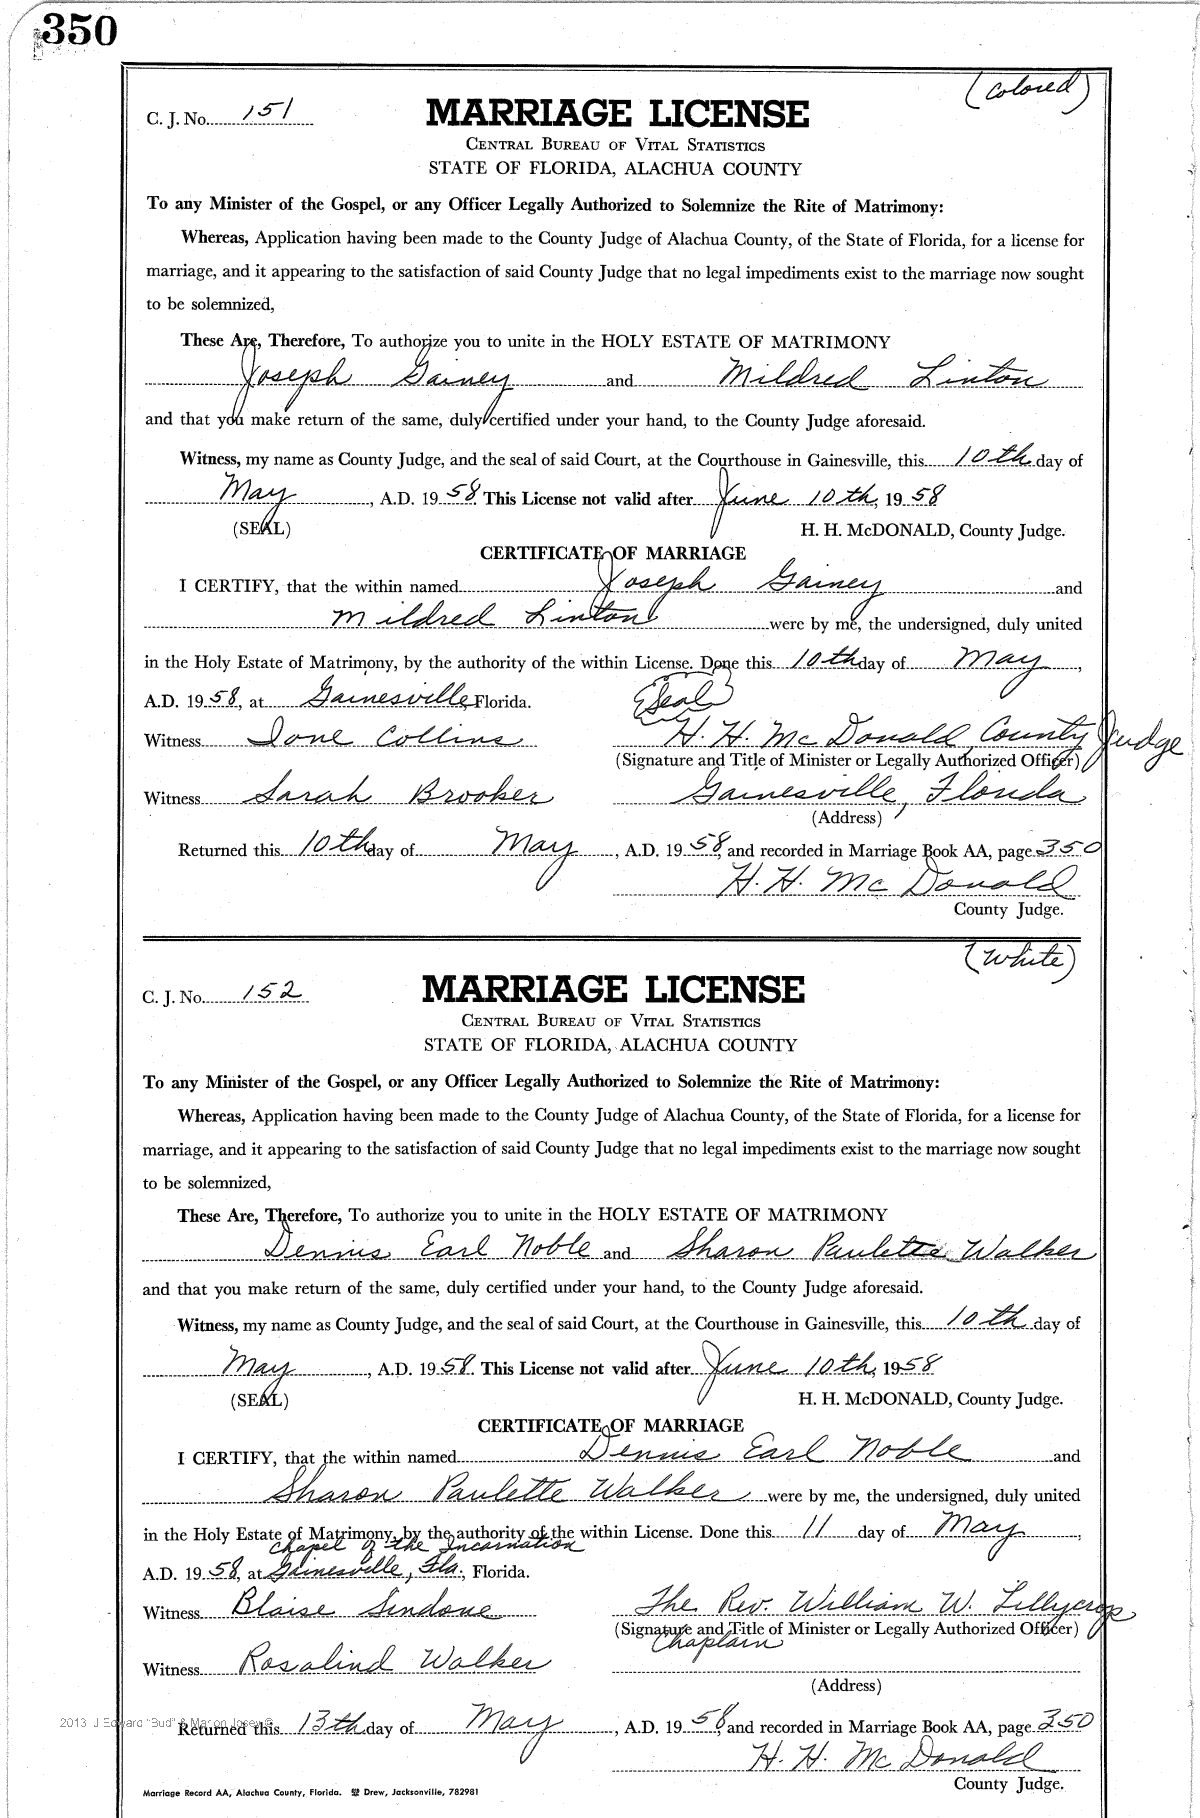 350
(Colored)
C. J. No. 151
MARRIAGE LICENSE
CENTRAL BUREAU OF VITAL STATISTICS
STATE OF FLORIDA, ALACHUA COUNTY
To any Minister of the Gospel, or any Officer Legally Authorized to Solemnize the Rite of Matrimony:
Whereas, Application having been made to the County Judge of Alachua County, of the State of Florida, for a license for
marriage, and it appearing to the satisfaction of said County Judge that no legal impediments exist to the marriage now sought
to be solemnized,
These Are, Therefore, To authorize you to unite in the HOLY ESTATE OF MATRIMONY
Joseph Gainey and Mildred Linton
and that you make return of the same, duly certified under your hand, to the County Judge aforesaid.
Witness, my name as County Judge, and the seal of said Court, at the Courthouse in Gainesville, this 10th day of
May, A.D. 1958 This License not valid after June 10th, 1958
(SEAL) H. H. McDONALD, County Judge.
CERTIFICATE OF MARRIAGE
I CERTIFY, that the within named Joseph Gainey and
Mildred Linton were by me, the undersigned, duly united
in the Holy Estate of Matrimony, by the authority of the within License. Done this 10th day of May,
A.D. 1958, at Gainesville, Florida. (Seal)
Witness Ione Collins H. H. McDonald, County Judge
(Signature and Title of Minister or Legally Authorized Officer)
Witness Sarah Brooker Gainesville, Florida
(Address)
Returned this 10th day of May, A.D. 1958, and recorded in Marriage Book AA, page 350
H. H. McDonald
County Judge.
(White)
C. J. No. 152
MARRIAGE LICENSE
CENTRAL BUREAU OF VITAL STATISTICS
STATE OF FLORIDA, ALACHUA COUNTY
To any Minister of the Gospel, or any Officer Legally Authorized to Solemnize the Rite of Matrimony:
Whereas, Application having been made to the County Judge of Alachua County, of the State of Florida, for a license for
marriage, and it appearing to the satisfaction of said County Judge that no legal impediments exist to the marriage now sought
to be solemnized,
These Are, Therefore, To authorize you to unite in the HOLY ESTATE OF MATRIMONY
Dennis Earl Noble and Sharon Paulette Walker
and that you make return of the same, duly certified under your hand, to the County Judge aforesaid.
Witness, my name as County Judge, and the seal of said Court, at the Courthouse in Gainesville, this 10th day of
May, A.D. 1958. This License not valid after June 10th, 1958
(SEAL) H. H. McDONALD, County Judge.
CERTIFICATE OF MARRIAGE
I CERTIFY, that the within named Dennis Earl Noble and
Sharon Paulette Walker were by me, the undersigned, duly united
in the Holy Estate of Matrimony, by the authority of the within License. Done this 11 day of May,
Chapel of the Incarnation
A.D. 1958, at Gainesville, Fla., Florida.
Witness Blaise Sindone The Rev. William W. Lillycrop
(Signature and Title of Minister or Legally Authorized Officer)
Chaplain
Witness Rosalind Walker
(Address)
Returned this 13th day of May, A.D. 1958, and recorded in Marriage Book AA, page 350
2013 J Edward "Bud" & Marion Josey ©
H. H. McDonald
County Judge.
Marriage Record AA, Alachua County, Florida. Drew, Jacksonville, 782981